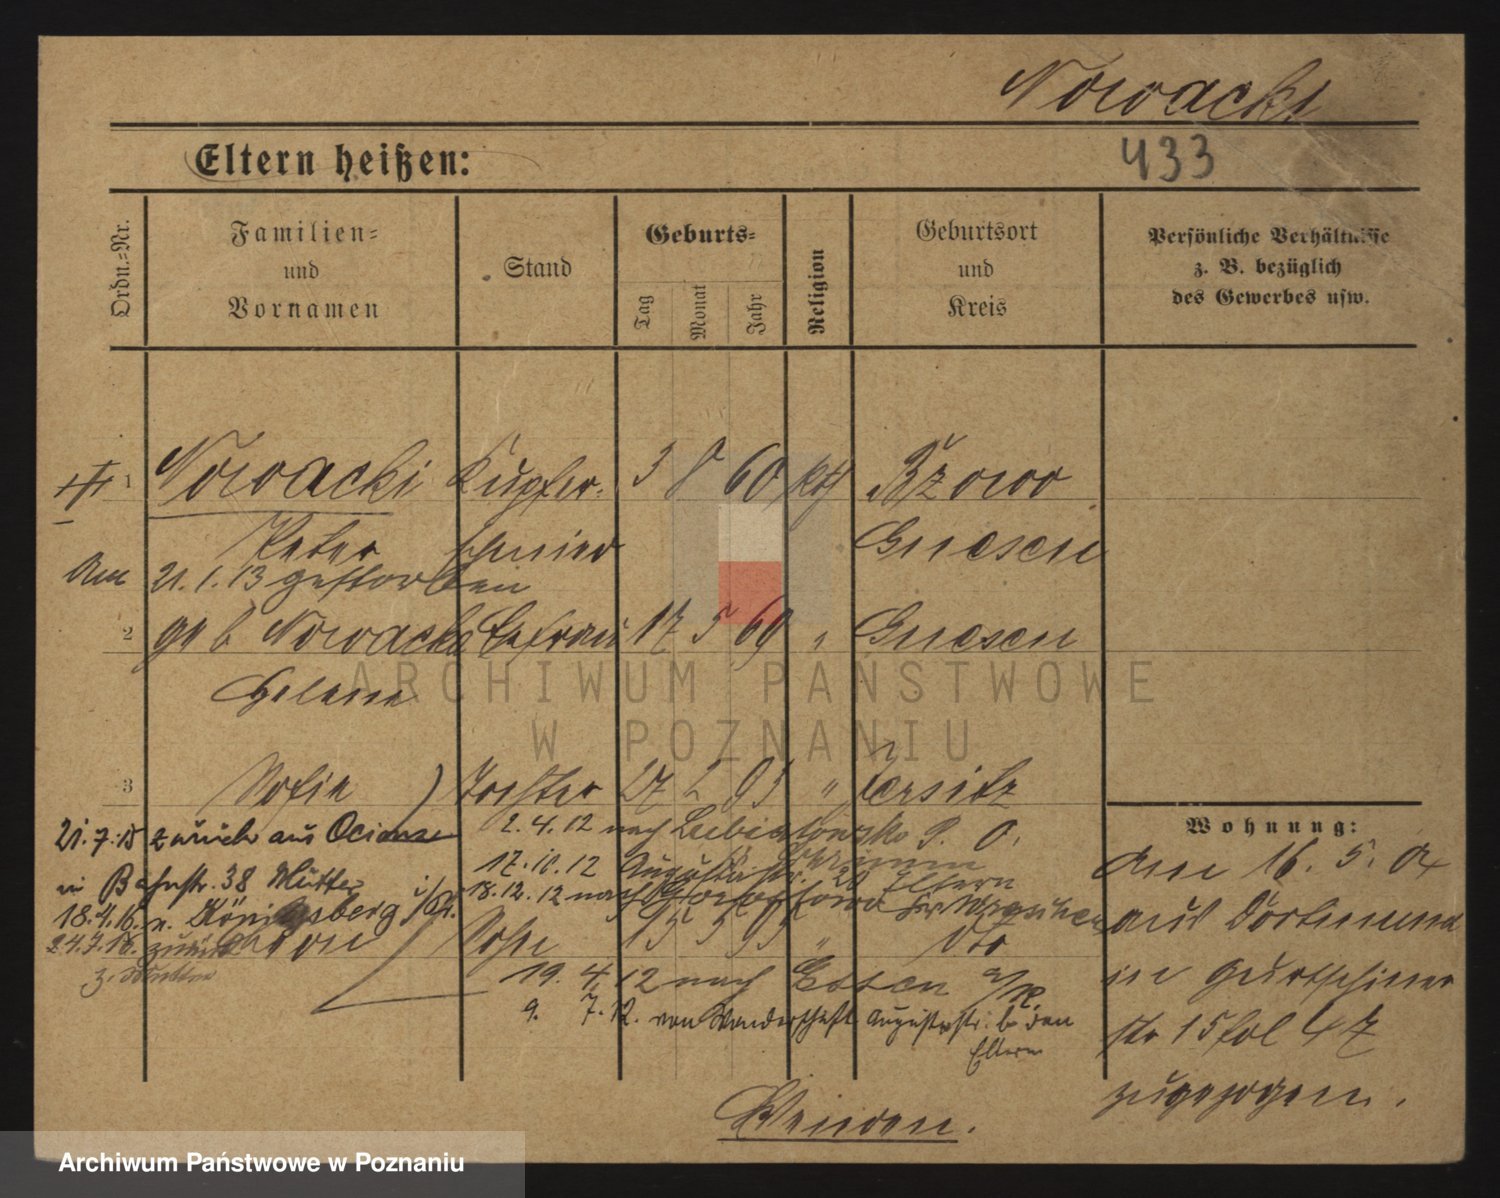 Nowacki
433
Eltern heißen:
Ordn.-Nr.
Familien-
und
Vornamen
Stand
Geburts-
Tag
Monat
Jahr
Religion
Geburtsort
und
Kreis
Persönliche Verhältnisse
z. B. bezüglich
des Gewerbes usw.
1 Nowacki Kupfer- 3 8 60 kth
Peter schmied Gnesen
Am 21.1.13 gestorben
2 geb Nowacka Ehefrau 17 5 69 " Gnesen
Helene
3 Sofie Tochter 27 2 93 " Jersitz
21.7.15 zurück aus
2.4.12 nach
17.10.12 Augustastr. 20 Eltern
in Bahnstr. 38 Mutter
18.12.12 nach
18.4.16. n. Königsberg i/Pr.
Sohn 13 5 95 " dto
24.7.16. zurück
z. Mutter
19. 4. 12 nach Essen a/R.
9. 7. 12. von Wanderschaft Augustastr. b. den
Eltern
Wohnung:
den 16. 5. 04
aus Dortmund
in
str 15 fol 47
zugezogen.
Wenden.
ARCHIWUM PAŃSTWOWE
W POZNANIU
Archiwum Państwowe w Poznaniu